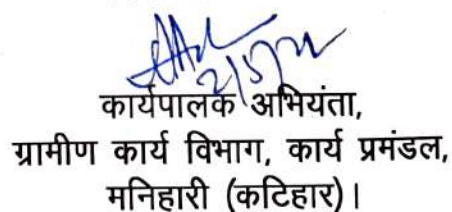 2/5/22
कार्यपालक अभियंता,
ग्रामीण कार्य विभाग, कार्य प्रमंडल,
मनिहारी (कटिहार)।